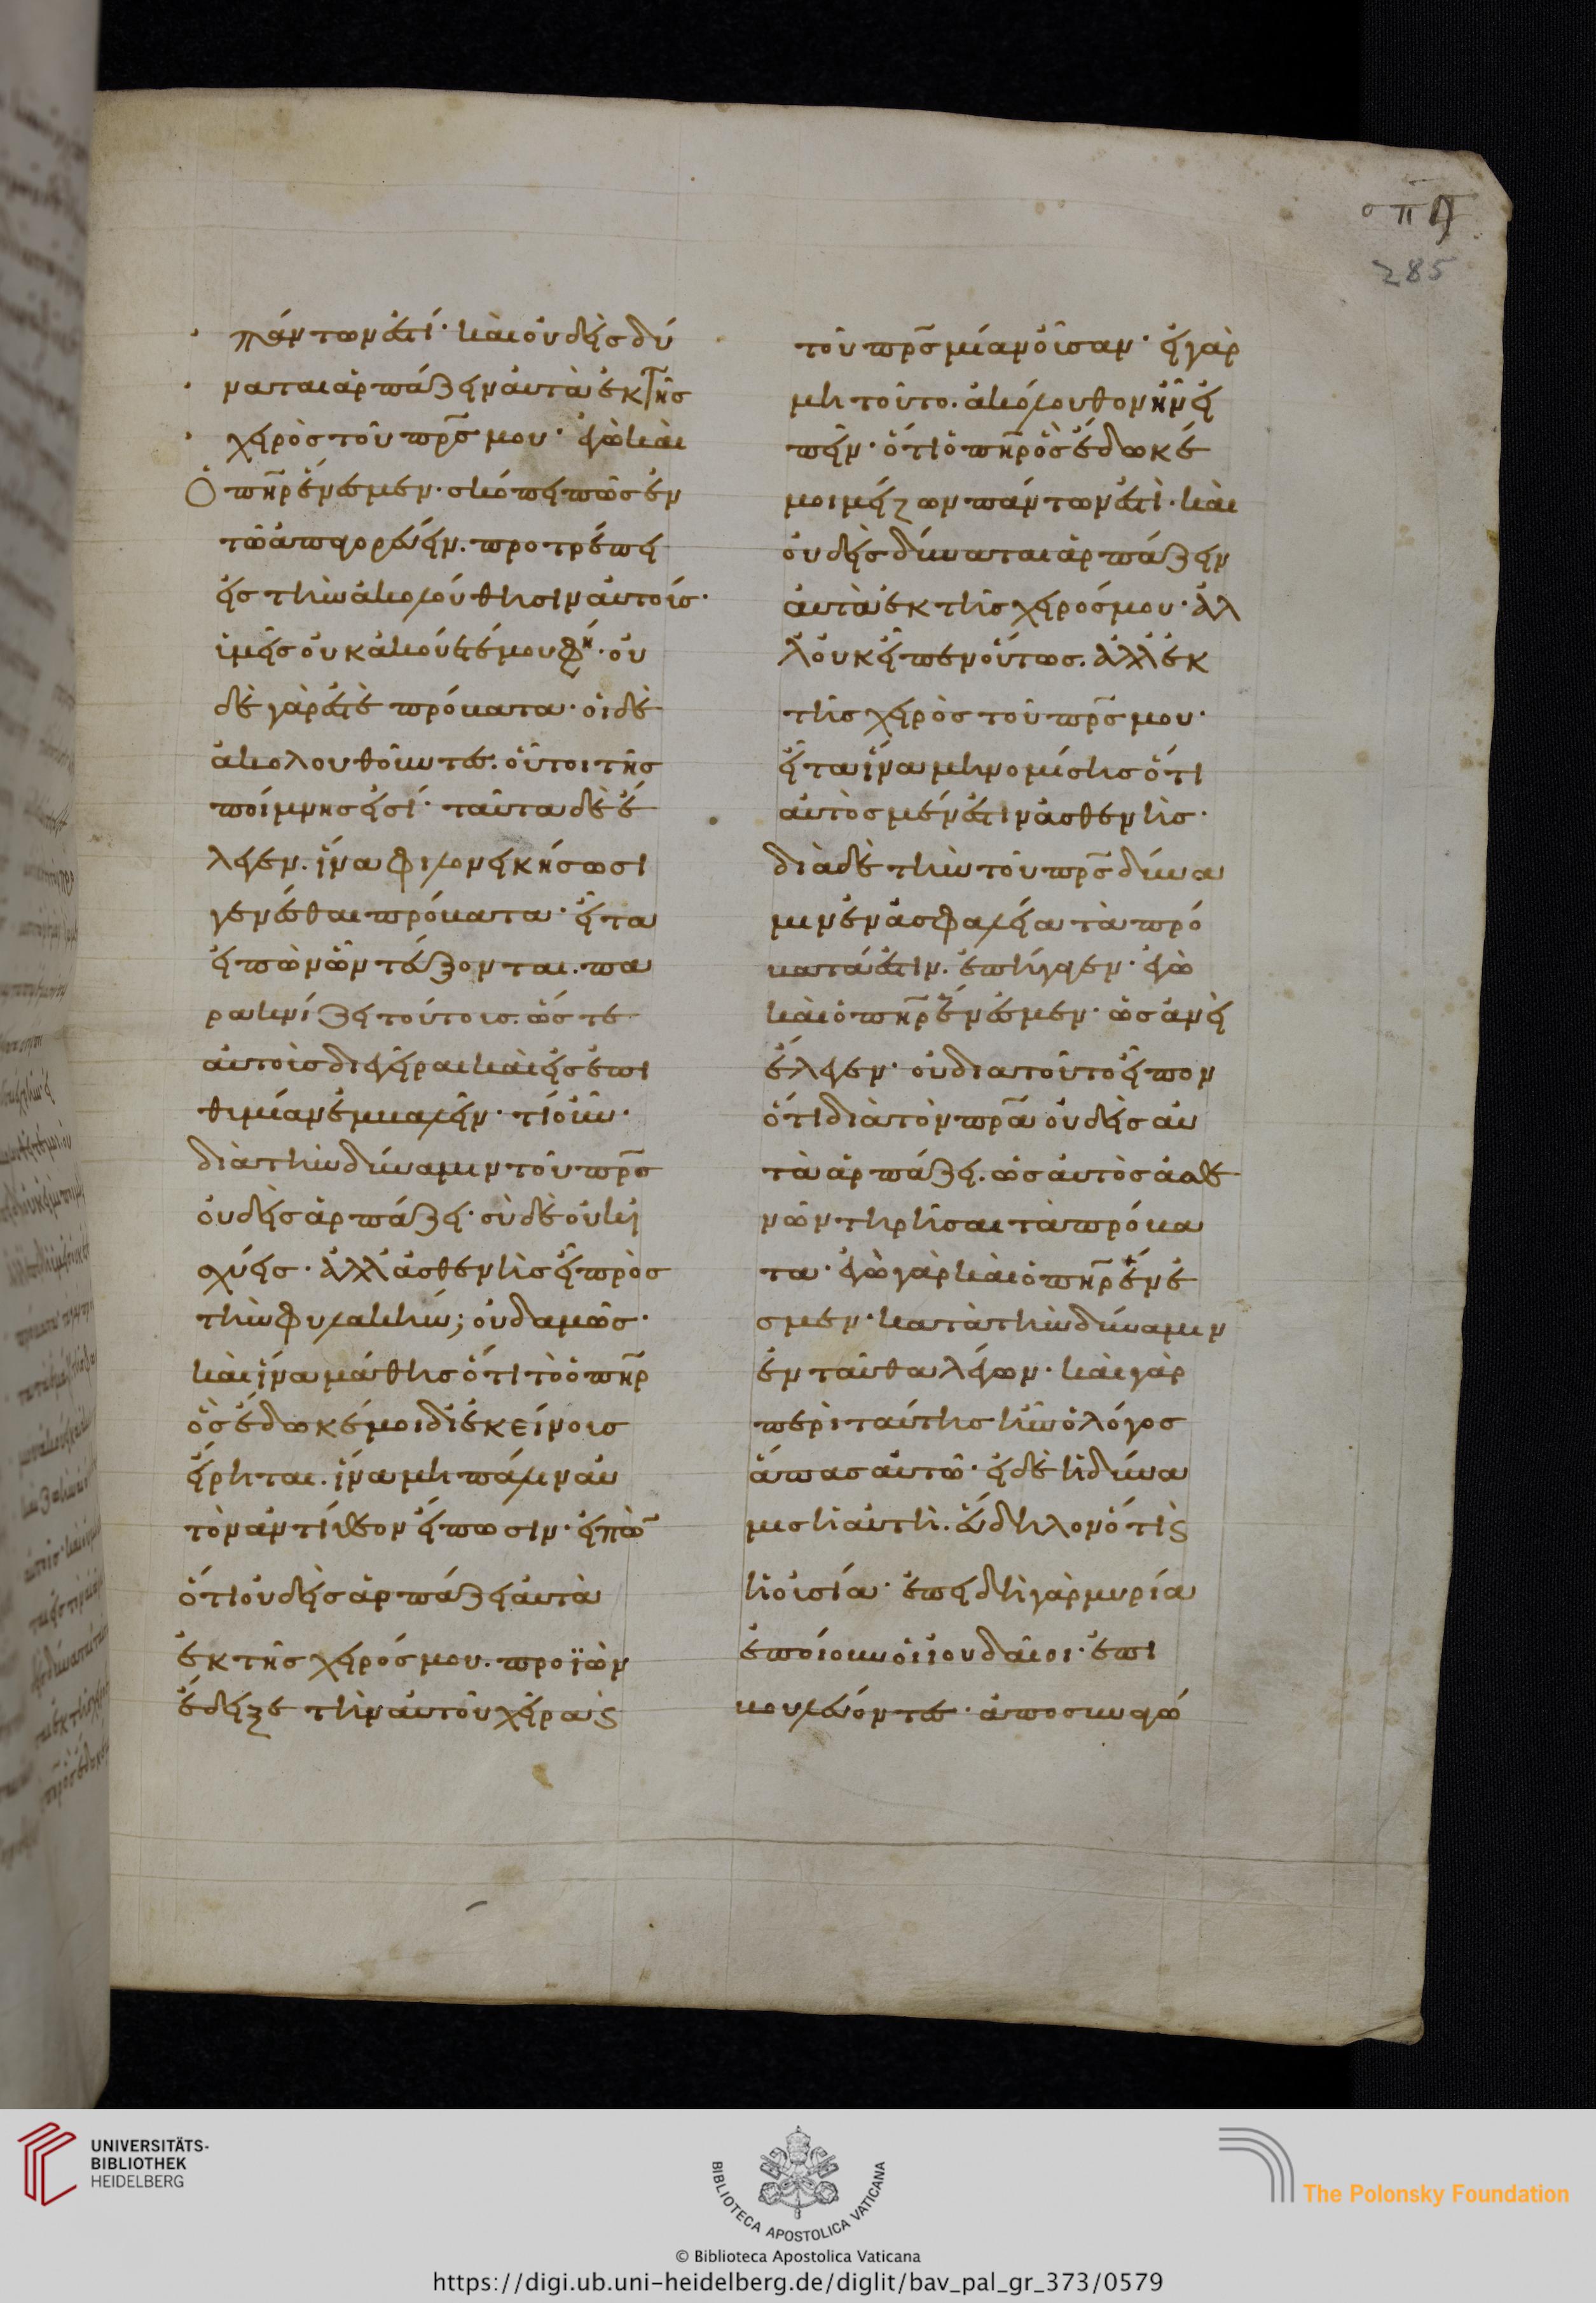 σπη
285
πάντων ἐστί· καὶ οὐδεὶς δύ
ναται ἁρπάζειν αὐτὰ ἐκ τῆς
χειρὸς τοῦ πρς μου· ἐγὼ καὶ
ὁ πηρ ἕν ἐσμεν· σκόπει πῶς ἐν
τῶ ἀπαγορεύειν. προτρέπει
εἰς τὴν ἀκολούθησιν αὐτοῖς·
ὑμεῖς οὐκ ἀκούετέ μου φη· οὐ
δὲ γάρ ἐστὲ πρόβατα· οἱ δὲ
ἀκολουθοῦντες. οὗτοι τῆς
ποίμνης εἰσί· ταῦτα δὲ ἔ
λεγεν. ἵνα φιλονεικήσωσι
γενέσθαι πρόβατα· εἶτα
εἰπὼν ὧν τεύξονται. πα
ρακνίζει τούτοις. ὥστε
αὐτοὺς διεγεῖραι καὶ εἰς ἐπι
θυμίαν ἐμβαλεῖν· τί οὖν·
διὰ τὴν δύναμιν τοῦ πρς
οὐδεὶς ἁρπάζει· σὺ δὲ οὐκ ἰ
σχύεις· ἀλλ' ἀσθενὴς εἶ πρὸς
τὴν φυλακήν; οὐδαμῶς·
καὶ ἵνα μάθης ὅτι τὸ ὁ πηρ
ὃς ἔδωκέ μοι δι' ἐκείνους
εἴρηται. ἵνα μὴ πάλιν αὐ
τὸν ἀντίθεον εἴπωσιν· εἰπὼν
ὅτι οὐδεὶς ἁρπάζει αὐτὰ
ἐκ τῆς χειρός μου. προϊὼν
ἔδειξε τὴν αὐτοῦ χεῖρα κ
τοῦ πρς μίαν οὖσαν· εἰ γὰρ
μὴ τοῦτο. ἀκόλουθον ἦν εἰ
πεῖν· ὅτι ὁ πηρ ὃς ἔδωκέ
μοι μείζων πάντων ἐστὶ· καὶ
οὐδεὶς δύναται ἁρπάζειν
αὐτὰ ἐκ τῆς χειρός μου· ἀλ
λ' οὐκ εἶπεν οὕτως. ἀλλ' ἐκ
τῆς χειρὸς τοῦ πρς μου·
εἶτα ἵνα μὴ νομίσης ὅτι
αὐτὸς μέν ἐστιν ἀσθενὴς·
διὰ δὲ τὴν τοῦ πρς δύνα
μιν ἐν ἀσφαλεία τὰ πρό
βατά ἐστιν. ἐπήγαγεν· ἐγὼ
καὶ ὁ πηρ ἕν ἐσμεν· ὡσανεὶ
ἔλεγεν· οὐ διατοῦτο εἶπον
ὅτι διὰ τὸν πρα οὐδεὶς αὐ
τὰ ἁρπάζει. ὡς αὐτὸς ἀσθε
νῶν τηρῆσαι τὰ πρόβα
τα· ἐγὼ γὰρ καὶ ὁ πηρ ἕν ἐ
σμεν· κατὰ τὴν δύναμιν
ἐνταῦθα λέγων· καὶ γὰρ
περὶ ταύτης ἦν ὁ λόγος
ἅπας αὐτῶ· εἰ δὲ ἡ δύνα
μις ἡ αὐτὴ. εὔδηλον ὅτι κ
ἡ οὐσία· ἐπειδὴ γὰρ μυρία
ἐποίουν οἱ ἰουδαῖοι· ἐπι
βουλεύοντες· ἀποσυναγώ
UNIVERSITÄTS-
BIBLIOTHEK
HEIDELBERG
BIBLIOTECA APOSTOLICA VATICANA
The Polonsky Foundation
© Biblioteca Apostolica Vaticana
https://digi.ub.uni-heidelberg.de/diglit/bav_pal_gr_373/0579